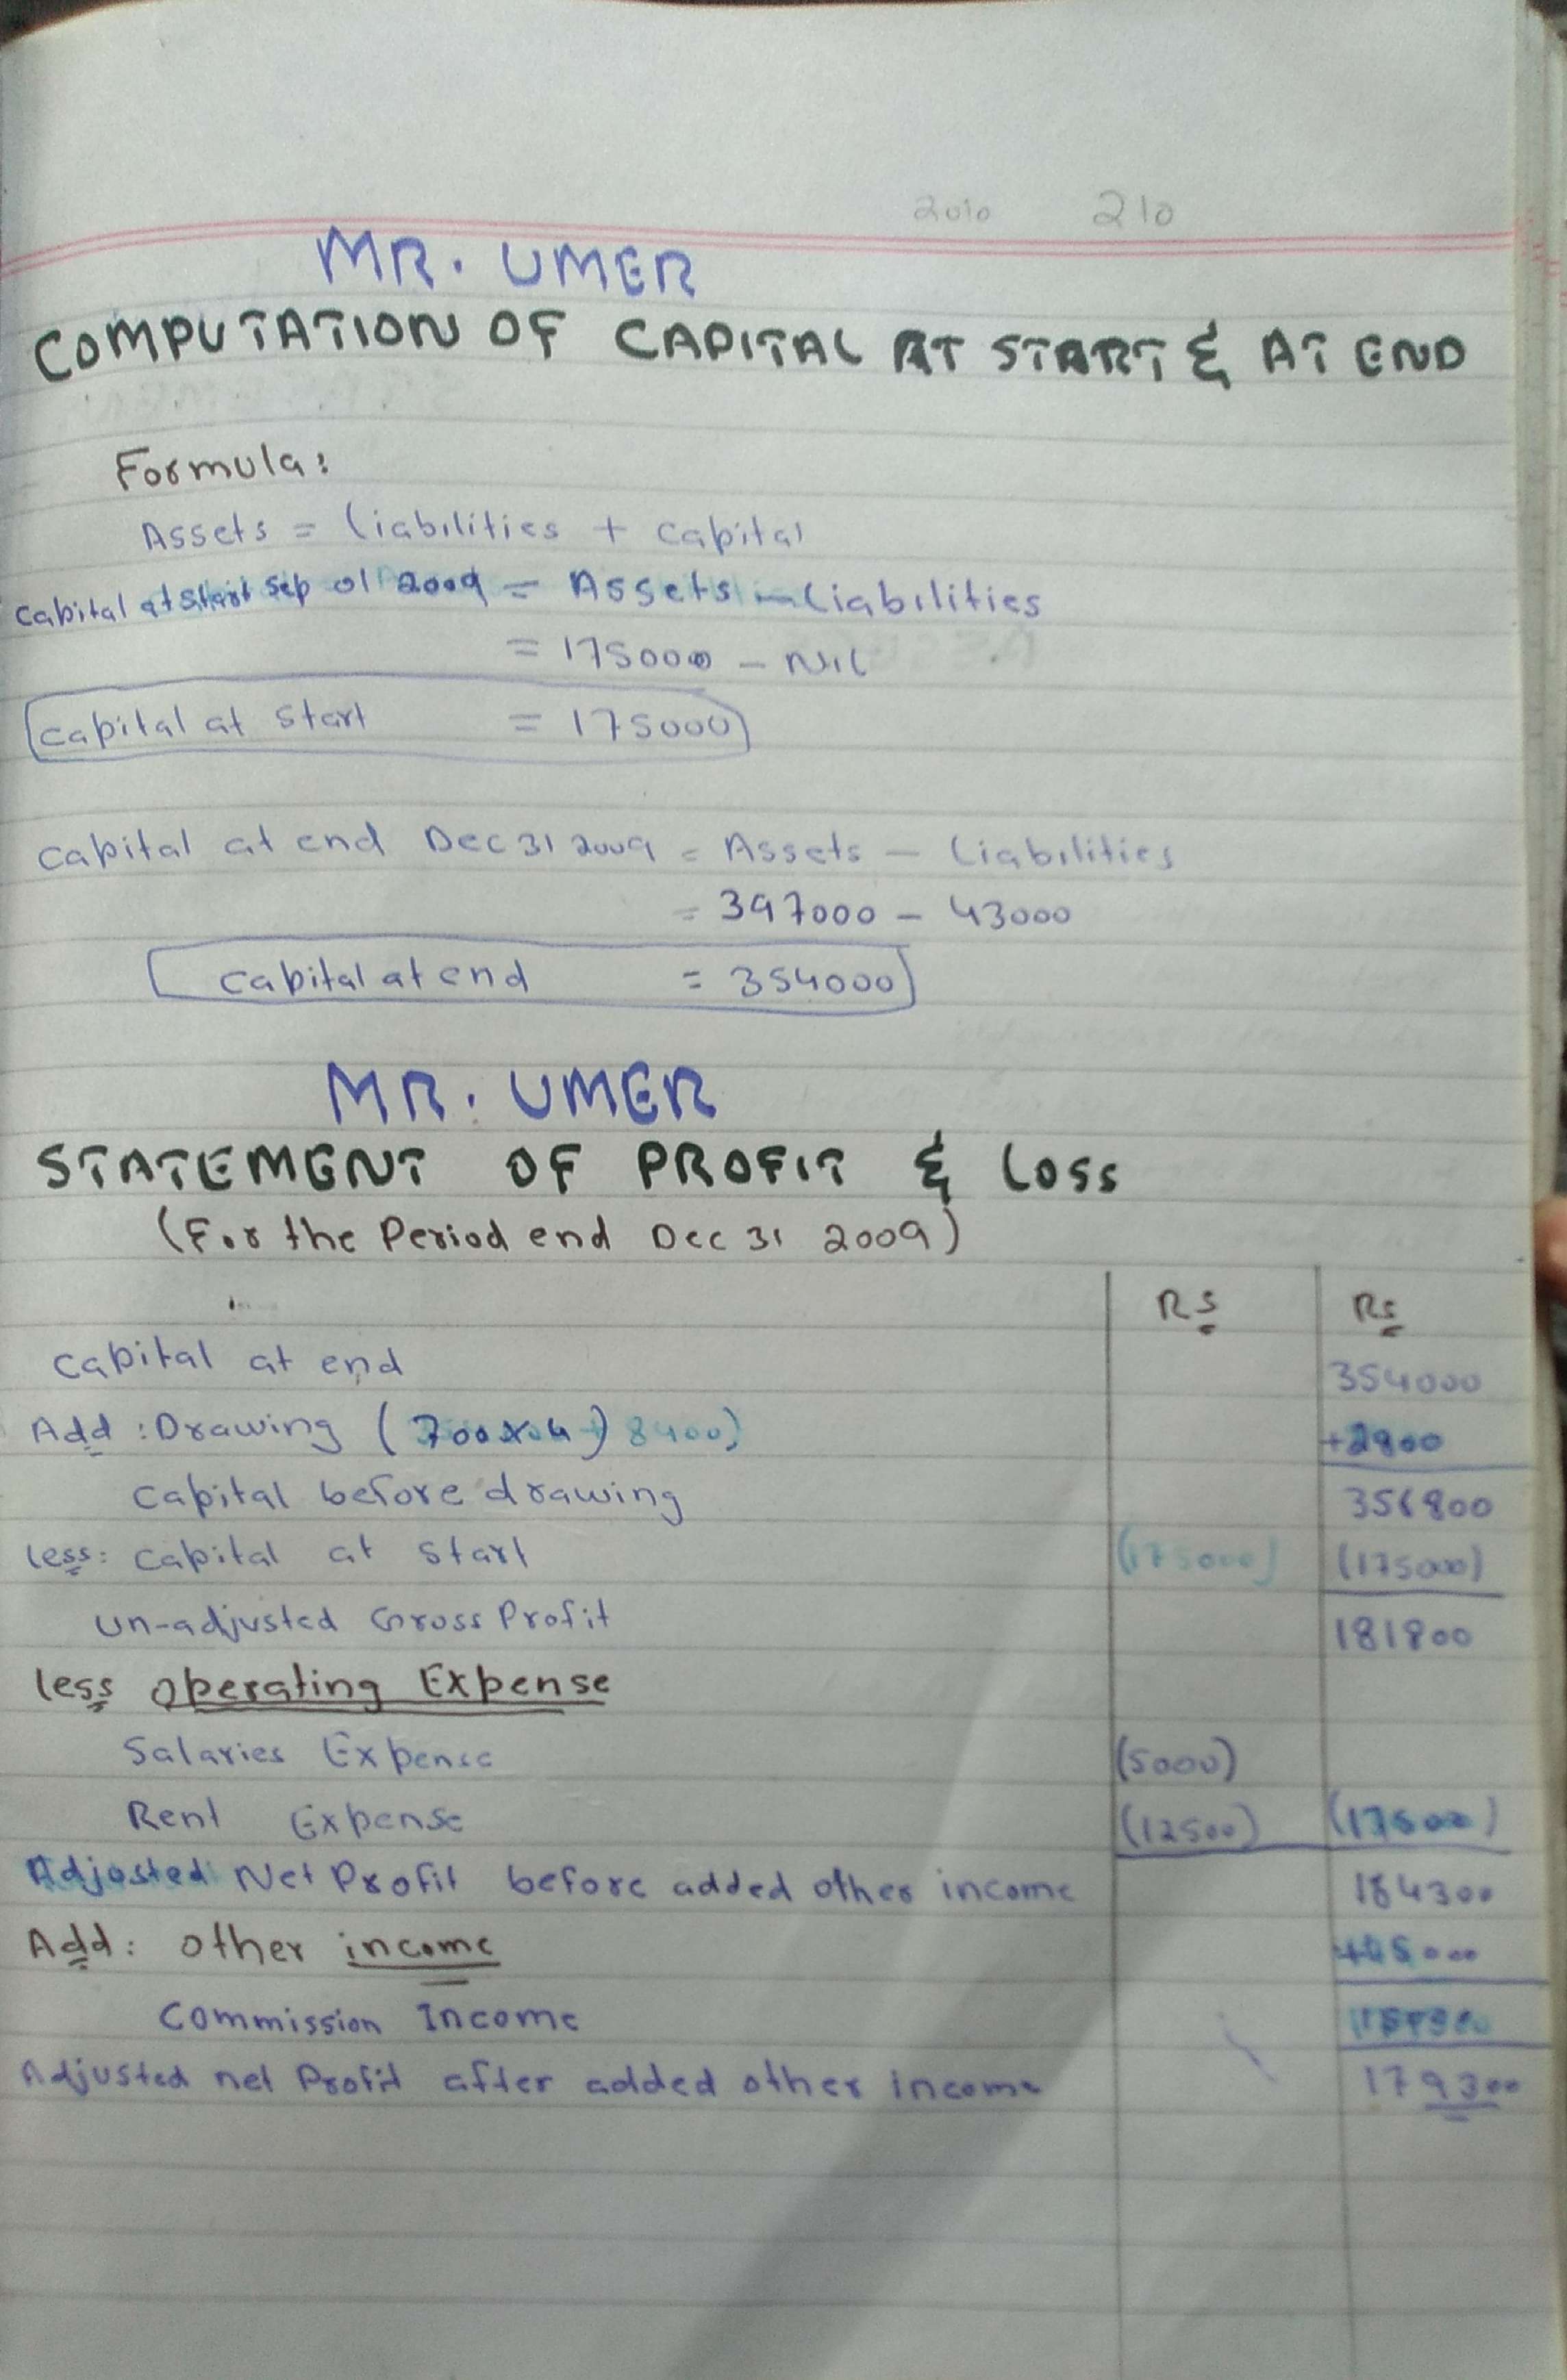 2010 210
MR. UMER
COMPUTATION OF CAPITAL AT START & AT END
Formula:
Assets = Liabilities + Capital
Capital at start Sep 01 2009 = Assets - Liabilities
= 175000 - Nil
Capital at start = 175000
Capital at end Dec 31 2009 = Assets - Liabilities
= 397000 - 43000
Capital at end = 354000
MR. UMER
STATEMENT OF PROFIT & LOSS
(For the Period end Dec 31 2009)
Rs Rs
Capital at end 354000
Add: Drawing (700x4) 8400) +2800
Capital before drawing 356800
less: Capital at start (175000) (175000)
Un-adjusted Gross Profit 181800
less operating Expense
Salaries Expense (5000)
Rent Expense (12500) (17500)
Adjusted Net Profit before added other income 164300
Add: other income
Commission Income
Adjusted net Profit after added other income 179300